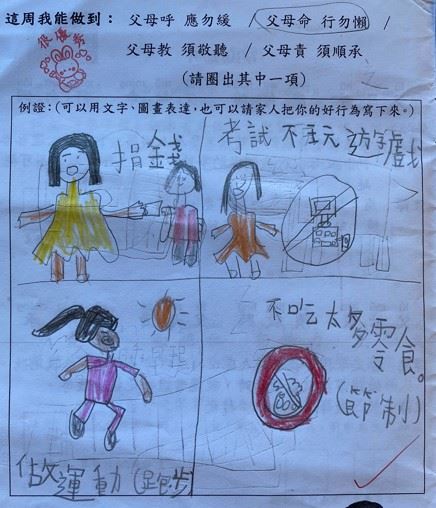 這周我能做到： 父母呼 應勿緩 / 父母命 行勿懶 /
父母教 須敬聽 / 父母責 須順承
(請圈出其中一項)
很優秀
例證：(可以用文字、圖畫表達，也可以請家人把你的好行為寫下來。)
捐錢
考試不玩遊戲
做運動(跑步)
不吃太多零食。
(節制)